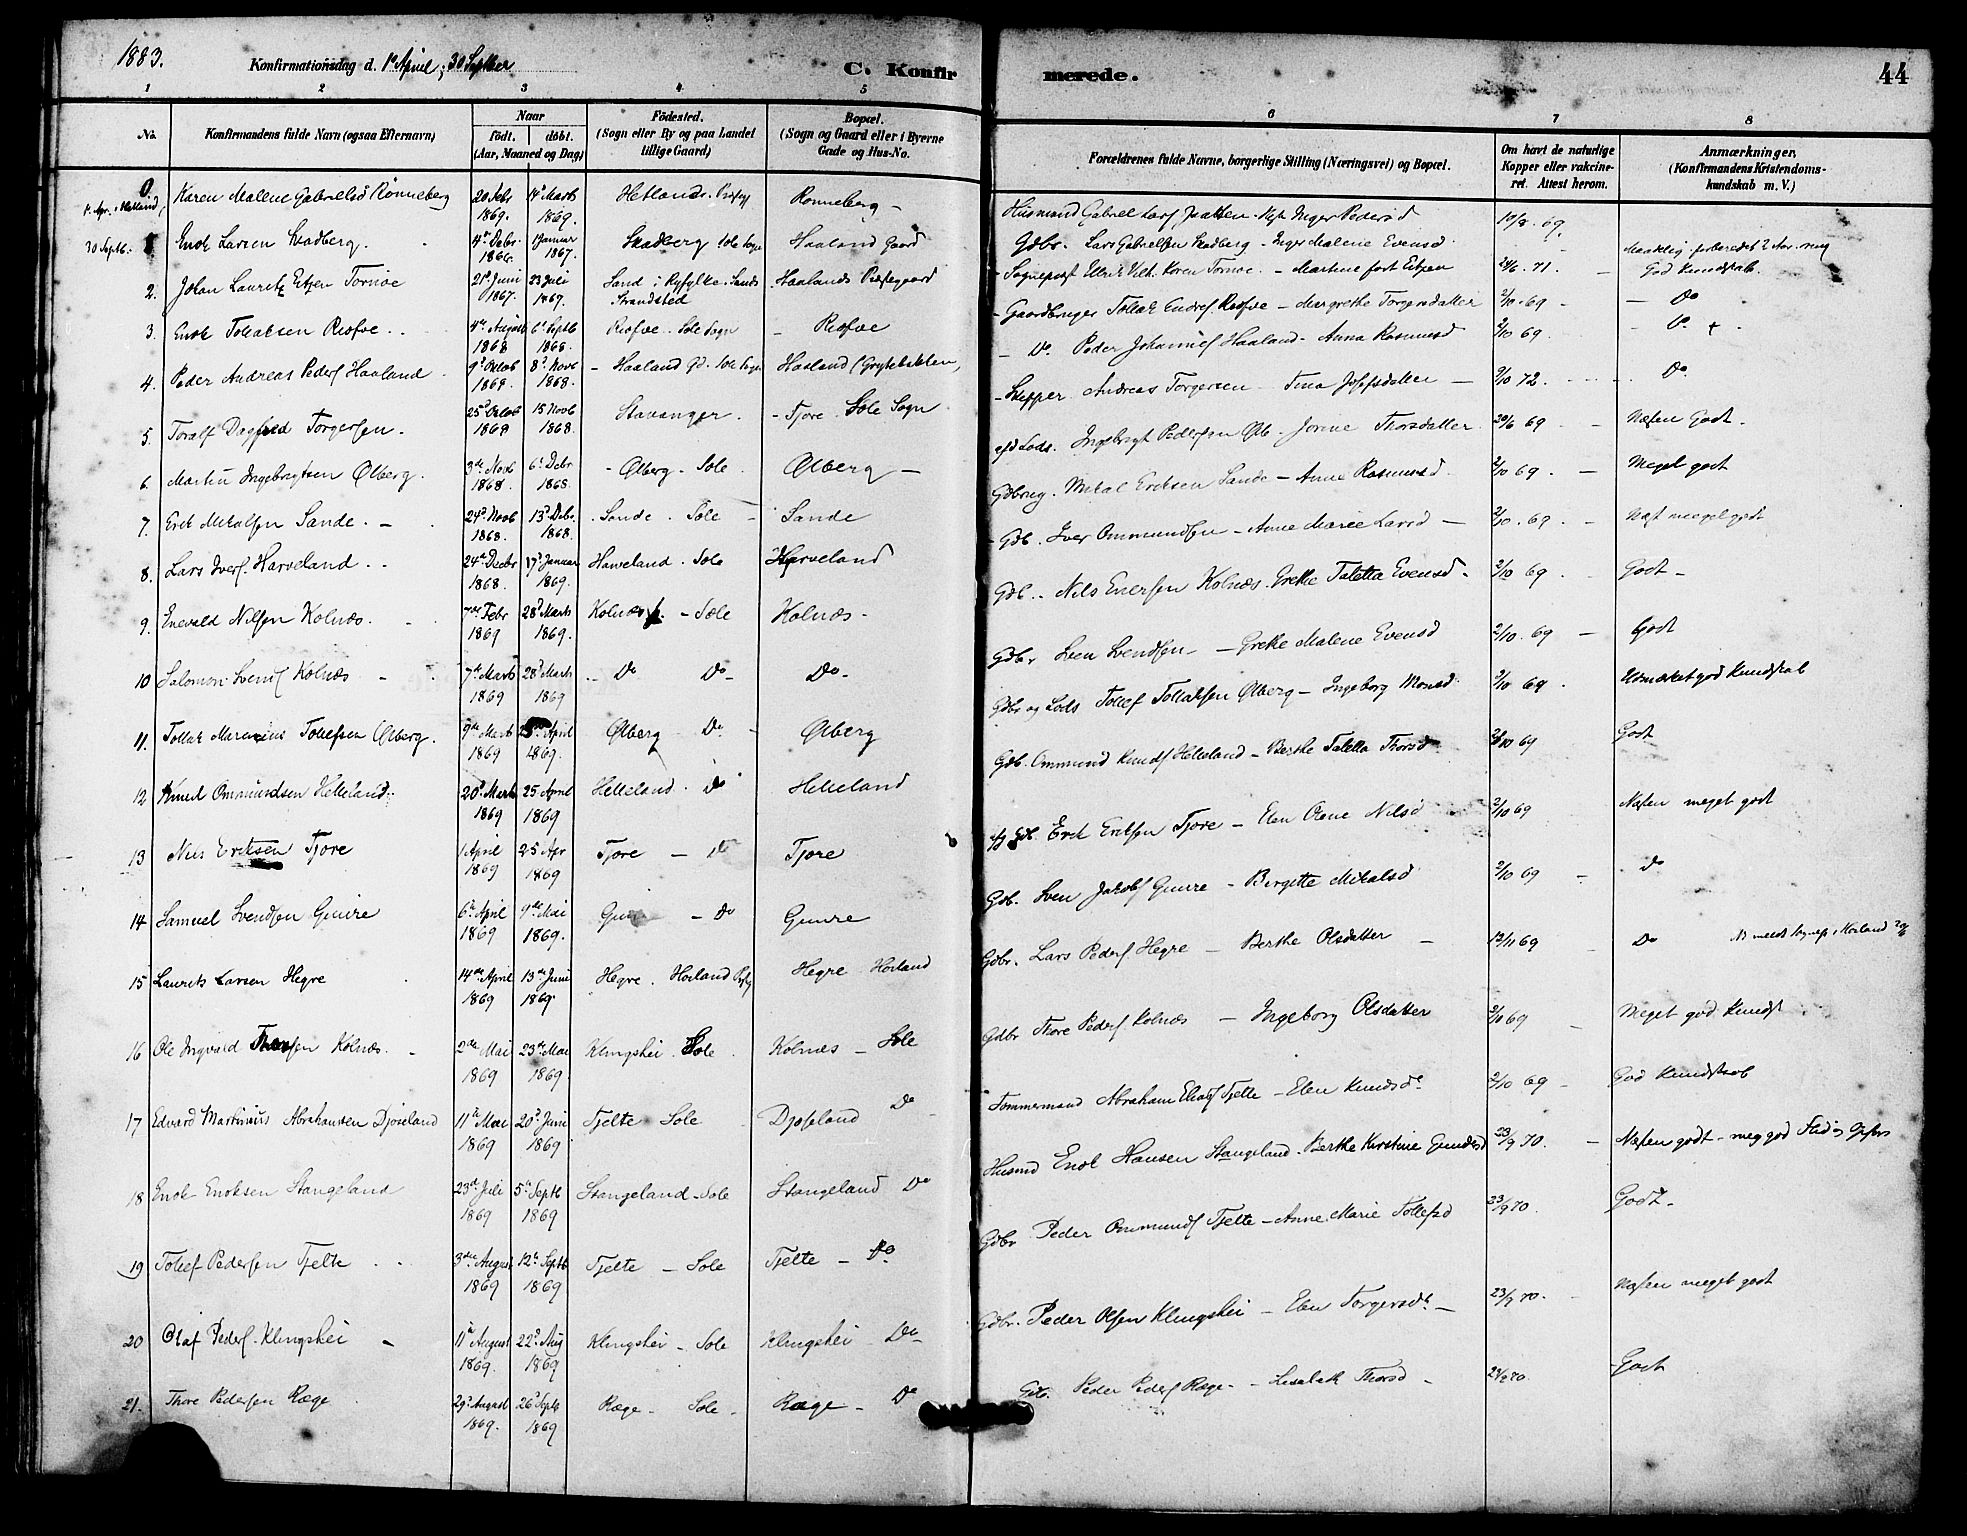 1883. Konfirmationsdag d. 1ste April, 30 Septber C. Konfirmerede. 44
1 2 3 4 5 6 7 8
No. Konfirmandens fulde Navn (ogsaa Efternavn) Naar født. døbt. (Aar, Maaned og Dag) Fødested. (Sogn eller By og paa Landet tillige Gaard) Bopæl. (Sogn og Gaard eller i Byerne Gade og Hus-No. Forældrenes fulde Navne, borgerlige Stilling (Næringsvei) og Bopæl. Om havt de naturlige Kopper eller vakcineret. Attest herom. Anmærkninger, (Konfirmandens Kristendomskundskab m. V.)
0. Karen Malene Gabrielsd Rønneberg 20 Febr 1869. 14d Marts 1869. Hetlands Rønneberg - Husmand Gabriel Inger Pedersd 19/8. 69.
30 Septb. 1 Enok Larsen Skadberg. 4de Debr. 1866. 1 Januar 1867. Skadberg Sole Sogn Haaland Gaard Gdbr. Lars Gabrielsen Skadberg - Inger Malene Evensd
2. Johan Lauritz Eitzen Tornøe 21d Juni 1867. 23 Juli 1867. Sand i Ryfylke. Sands Strandsted Haalands Præstegaard Sognepræst Ellert Vilh. Koren Tornøe. - Martine født Eitzen 24/6. 71. - God Kundskab.
3. Enok Tollaksen Risfoe 4de August 1868 6d Septb 1868. Risfoe. Sole Sogn - Risfoe - Gaardbruger Tollak Endres. Risfoe - Margrethe Torgersdatter 2/10. 69 - Do
4. Peder Andreas Peders. Haaland 9d Oktob 1868. 8d Novb 1868. - Haaland Gd. Sole Sogn Haaland (Grytebekken) - Do. Peder Johannes. Haaland - Anna Rasmusd 2/10 69. - Do.
5. Toralf Dagfred Torgersen. 25d Oktob 1868 15 Novb 1868. Stavanger. - Tjore. Sole Sogn Skipper Andreas Torgersen - Tina Josefsdatter - 9/10 72. Do.
6. Martin Ingebrigtsen Ølberg. 3de Novb 1868. 6d Debr 1868. - Ølberg - Sole Ølberg - Lods. Ingebrigt Pedersen Ølb - Jorine Thorsdatter 20/6 69 - Næsten Godt.
7. Erik Mikalsen Sande. - 24d Novb 1868. 13d Debr. 1868. Sande. Sole - Sande Gdbrug. Mikal Eriksen Sande - Anne Rasmusd. 2/10 69. - Meget godt
8. Lars Ivers. Harveland 24de Decbr 1868. 17d Januar 1869. Harveland. Sole Harveland Gdb. Iver Ommundsen - Anne Marie Larsd - 2/10. 69. - Næst meget godt
9. Enevald Nilsen Kolnæs. 7de Febr 1869 28d Marts 1869. Kolnæs - Sole Kolnæs - Gdb. Nils Enersen Kolnæs. Grethe Taletta Evensd. 2/10 69. Godt -
10 Salomon Svends. Kolnæs - 7de Marts 1869 28d Marts 1869 Do Do - Do - Gdbr Sven Svendsen - Grethe Malene Evensd 2/10. 69 - Godt
11. Tollak Marensius Tollefsen Ølberg. 9de Marts 1869 April 1869. Ølberg Do - Ølberg Gdbr og Lods Tollef Tollaksen Ølberg - Ingeborg Monsd 2/10 69. Udmærket god Kundskab
12 Knud Ommundsen Helleland 20d Marts 1869 25 April 1869 Helleland. Do Helleland Gdb. Ommund Knuds. Helleland - Berthe Taletta Thorsd 2/10 69 Godt
13 Nils Eriksen Tjore 1 April 1869 25 Apr 1869 Tjore - Do Tjore Gdb. Erik Eriksen Tjore - Elen Olene Nilsd 2/10 69 Næsten meget godt
14 Samuel Svendsen Gimre 6te April 1869 9de Mai 1869. - Do Gimre Gdb. Sven Jakobs. Gimre - Birgitte Mikalsd 2/10 69 - Do
15 Laurits Larsen Hegre 14de April 1869 13de Juni 1869. Hegre. Høiland Hegre Høiland Gdbr. Lars Peders. Hegre - Berthe Olsdatter - 13/11 69 - Do
16 Ole Ingvald Thorsen Kolnæs. 2den Mai 1869 23de Mai 1869. Klingshei Sole Kolnæs - Sole Gdbr Thore Peders. Kolnæs - Ingeborg Olsdatter 2/10 69 - Meget god Kundsk
17 Edvard Martinius Abrahamsen Djøseland 11te Mai 1869 20d Juni 1869 Tjelte Sole Djøseland Do Tømmermand Abraham Elias. Tjelte - Elen Knudsd. 2/10 69 - God Kundskab
18 Enok Enoksen Stangeland 23d Juli 1869 5te Septb 1869 Stangeland - Sole Stangeland Do Husmd Enok Hansen Stangeland. Berthe Kirstine Gundersd 23/9 70. - Næsten godt - meg god Flid
19 Tollef Pedersen Tjelte 3die August 1869 12te Septb 1869 Tjelte - Sole Tjelte - Do. Gdbr Peder Ommunds. Tjelte - Anne Marie Tollefsd 23/9 70. Godt -
20 Olaf Peders. Klingshei - 11te August 1869. 22d Aug 1869 Klingshei - Sole Klingshei - Do - Gdbr. Peder Olsen Klingshei - Elen Torgersdt. - 23/9 70. - Næsten meget godt
21. Thore Pedersen Ræge 29d August 1869. 26d Septb 1869 Ræge - Sole - Ræge - Do Gdb. Peder Peders. Ræge - Lisabeth Thorsd - Godt